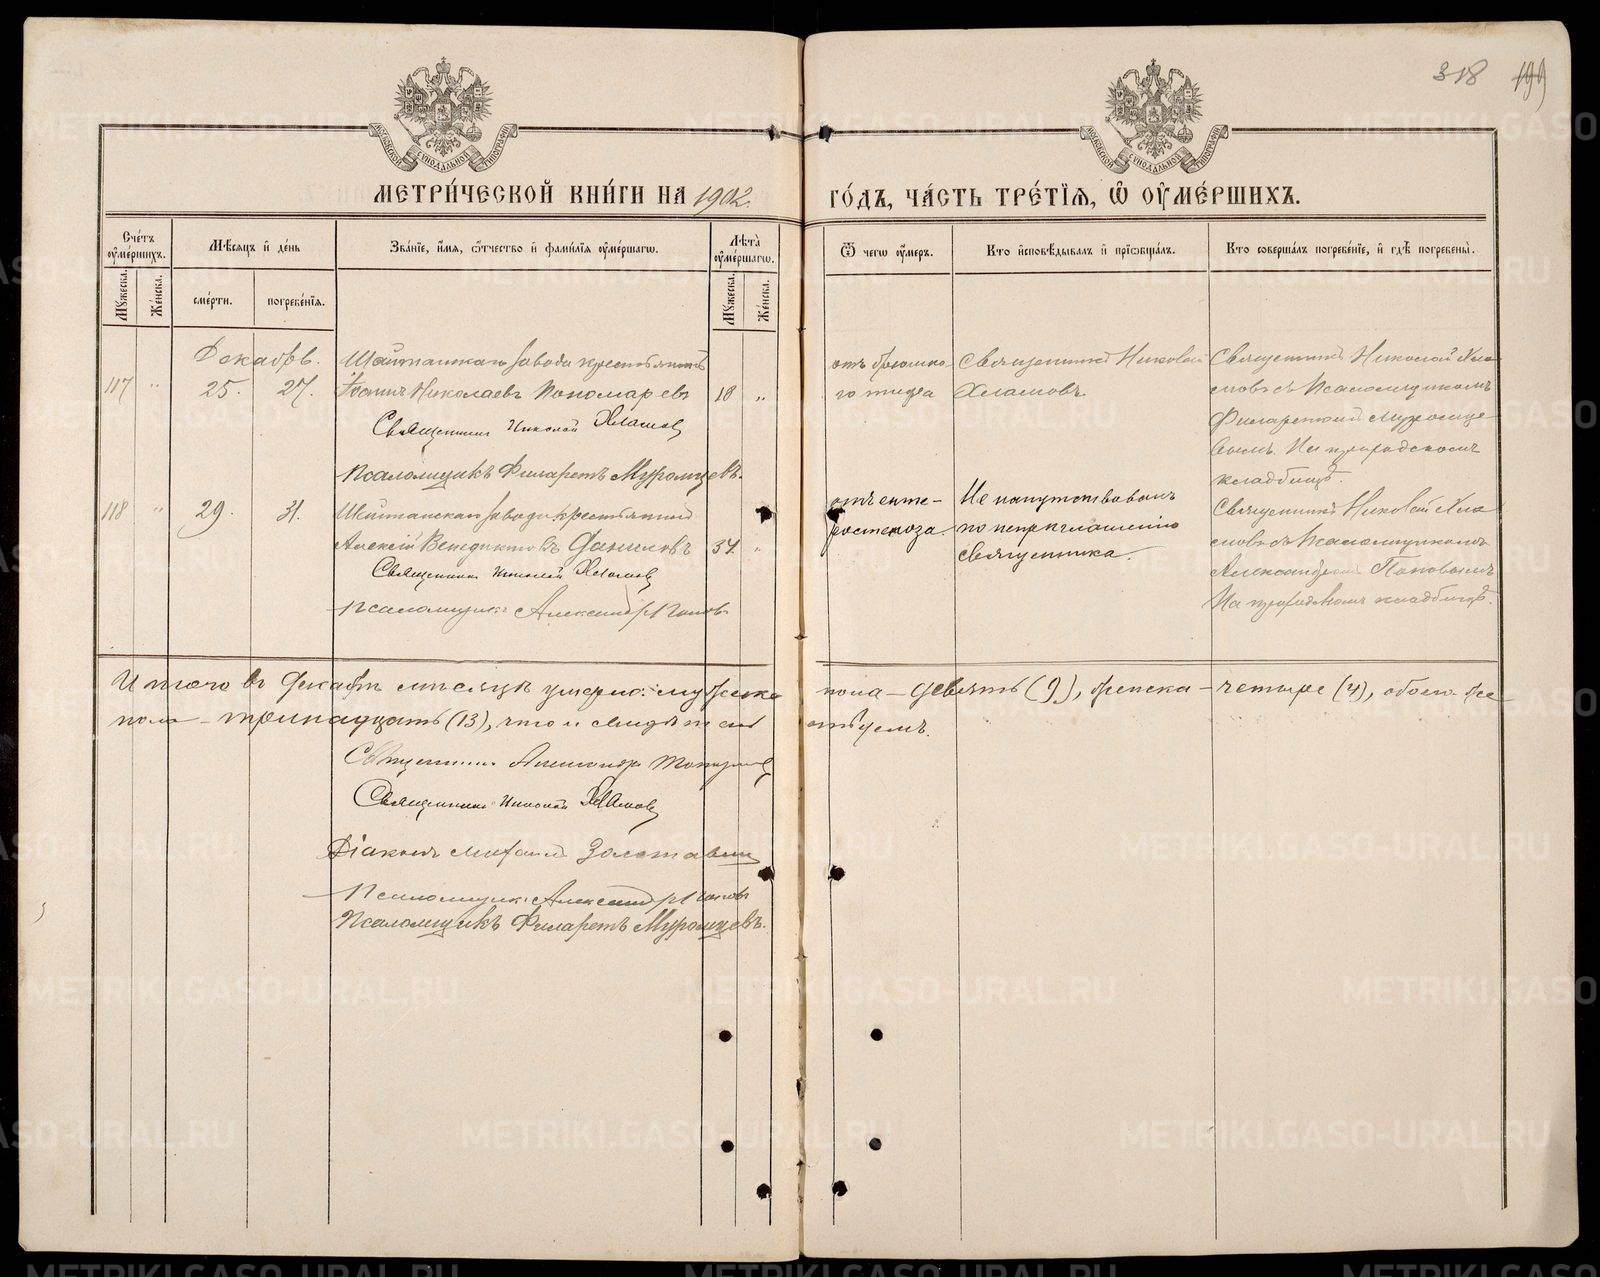 318 199
МОСКОВСКОЙ СѴНОДАЛЬНОЙ ТИПОГРАФІИ
МОСКОВСКОЙ СѴНОДАЛЬНОЙ ТИПОГРАФІИ
МЕТРИ́ЧЕСКОЙ КНИ́ГИ НА 1902. ГО́ДЪ, ЧА́СТЬ ТРЕ́ТІѦ, Ѡ҆ ОУ҆МЕ́РШИХЪ.
Сче́тъ оу҆ме́ршихъ.
Мꙋ́жеска. Же́нска.
Мѣ́сѧцъ и҆ де́нь
сме́рти. погребе́нїѧ.
Зва́нїе, и҆́мѧ, ѻ҆́тчество и҆ фами́лїѧ оу҆ме́ршагѡ.
Лѣ́та оу҆ме́ршагѡ.
Мꙋ́жеска. Же́нска.
Ѿ чегѡ̀ оу҆́меръ.
Кто̀ и҆сповѣ́дывалъ и҆ прїѡбща́лъ.
Кто̀ соверша́лъ погребе́нїе, и҆ гдѣ̀ погребены̀.
Декабрь.
117 " 25. 27.
Шайтанскаго завода крестьянинъ
Іоаннъ Николаевъ Пономаревъ 18 "
Священникъ Николай Хламовъ
Псаломщикъ Филаретъ Муромцевъ.
отъ брюшно-
го тифа
Священникъ Николай
Хламовъ.
Священникъ Николай Хла-
мовъ съ Псаломщикомъ
Филаретомъ Муромце-
вымъ. На приходскомъ
кладбищѣ.
118 " 29. 31.
Шайтанскаго завода крестьянинъ
Алексій Венедиктовъ Даниловъ 37. "
Священникъ Николай Хламовъ
Псаломщикъ Александръ Поповъ
Не напутствованъ
по неприглашенію
священника.
Священникъ Николай Хла-
мовъ съ Псаломщикомъ
Александромъ Поповымъ
На приходскомъ кладбищѣ.
Итого въ Декабрѣ мѣсяцѣ умерло: мужеска пола – девять (9), женска – четыре (4), обоего же
пола – тринадцать (13), что и свидѣтель ствуемъ.
Священникъ Александръ
Священникъ Николай Хламовъ
Діаконъ Михаилъ
Псаломщикъ Александръ Поповъ
Псаломщикъ Филаретъ Муромцевъ.
METRIKI.GASO-URAL.RU